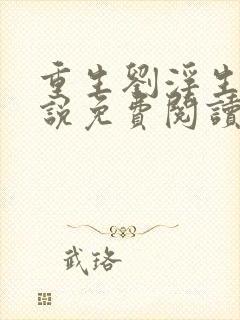 重生劉淫生
說免費閱讀
武珞